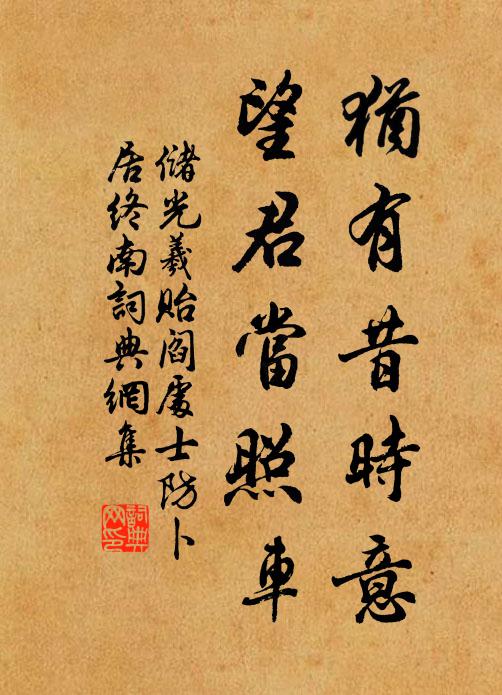 猶有昔時意
望君當照車
儲光羲貽閻處士防卜
居終南詞典網集
詞典
网